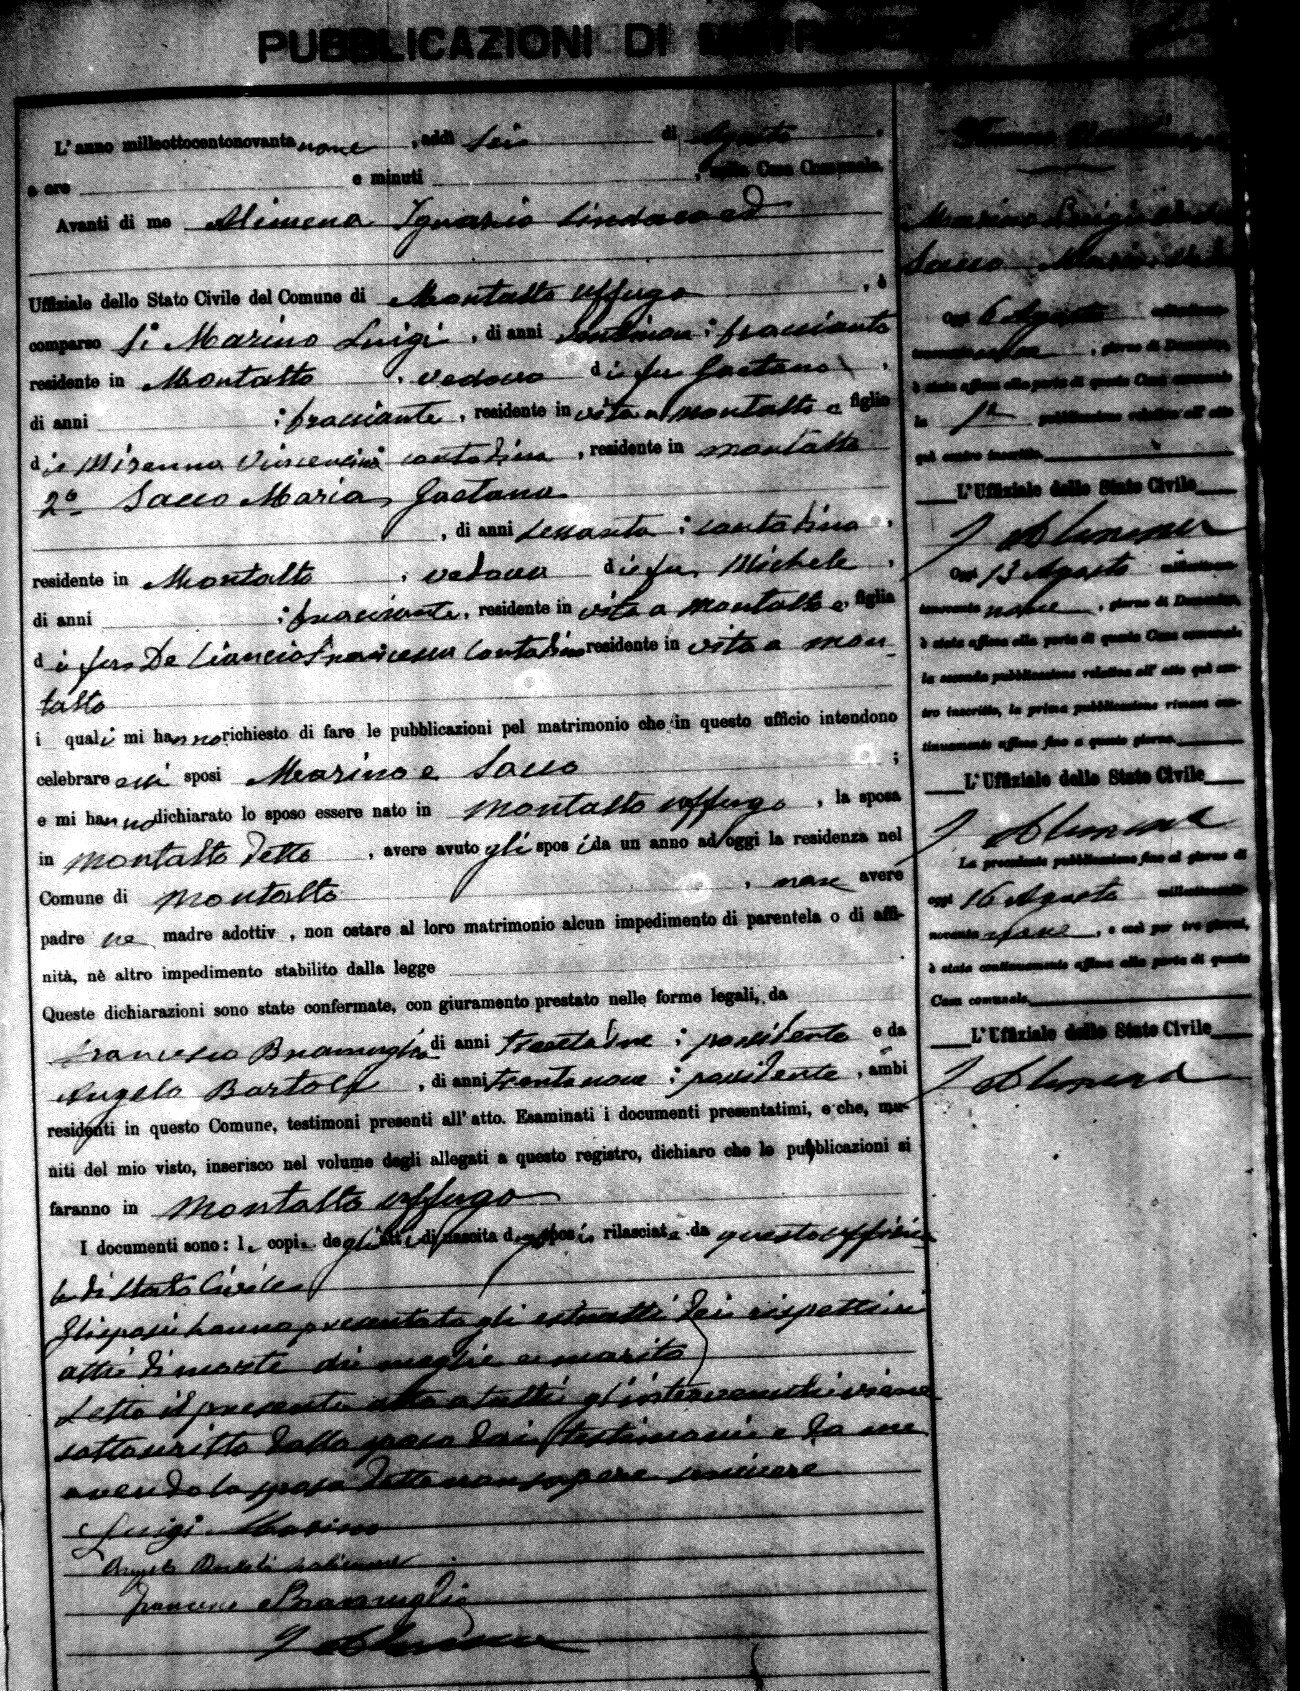 PUBBLICAZIONI DI
L'anno milleottocentonovanta nove, addì sei di Agosto,
a ore e minuti , nella Casa Comunale.
Avanti di me Alimena Ignazio Sindaco ed
Uffiziale dello Stato Civile del Comune di Montalto Uffugo, è
comparso Si Marino Luigi, di anni ; bracciante
residente in Montalto, vedovo di fu Gaetano,
di anni ; bracciante, residente in vita a Montalto e figlio
di Vincenzina contadina, residente in Montalto
2º Sacco Maria Gaetana
, di anni sessanta; contadina,
residente in Montalto, vedova di fu Michele,
di anni ; bracciante, residente in vita a Montalto e, figlia
di fu De Francesca Contadina residente in vita a Mon_
talto
i quali mi hanno richiesto di fare le pubblicazioni pel matrimonio che in questo ufficio intendono
celebrare essi sposi Marino e Sacco ;
e mi hanno dichiarato lo sposo essere nato in Montalto Uffugo, la sposa
in Montalto detto, avere avuto gli sposi da un anno ad oggi la residenza nel
Comune di Montalto, non avere
padre ne madre adottiv , non ostare al loro matrimonio alcun impedimento di parentela o di affi-
nità, nè altro impedimento stabilito dalla legge .
Queste dichiarazioni sono state confermate, con giuramento prestato nelle forme legali, da
Francesco Bramuglia di anni ; possidente e da
Angelo Bartoli, di anni trentanove; possidente, ambi
residenti in questo Comune, testimoni presenti all'atto. Esaminati i documenti presentatimi, e che, mu-
niti del mio visto, inserisco nel volume degli allegati a questo registro, dichiaro che le pubblicazioni si
faranno in Montalto Uffugo
I documenti sono: le copie degli atti di nascita degli sposi rilasciate da questo Uffizia
le di Stato Civile
Gli sposi hanno presentato gli estratti dei rispettivi
atti di morte di moglie e marito
Letto il presente atto a tutti gl'intervenuti viene
sottoscritto dallo sposo dai testimoni e da me
avendo la sposa detto non sapere scrivere
Luigi Marino
Angelo Bartoli
Francesco Bramuglia
I Alimena
Marino Luigi
Sacco Maria
Oggi 6 Agosto millottocento-
novanta nove, giorno di Domenica,
è stata affissa alla porta di questa Casa comunale
la 1ª pubblicazione relativa all'atto
quì contro inscritto.
L'Uffiziale dello Stato Civile
I Alimena
Oggi 13 Agosto millottocento-
novanta nove, giorno di Domenica,
è stata affissa alla porta di questa Casa comunale
la seconda pubblicazione relativa all'atto quì con-
tro inscritto, la prima pubblicazione rimase con-
tinuamente affissa fino a questo giorno.
L'Uffiziale dello Stato Civile
I Alimena
La precedente pubblicazione fino al giorno di
oggi 16 Agosto millottocento-
novanta nove, e così per tre giorni,
è stata continuamente affissa alla porta di questa
Casa comunale.
L'Uffiziale dello Stato Civile
I Alimena